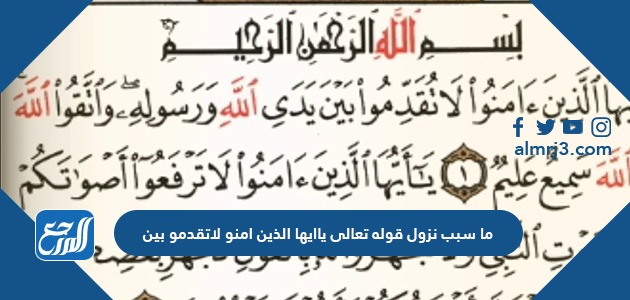 بِسْمِ ٱللَّهِ ٱلرَّحْمَٰنِ ٱلرَّحِيمِ
يُّهَا ٱلَّذِينَ ءَامَنُوا۟ لَا تُقَدِّمُوا۟ بَيْنَ يَدَىِ ٱللَّهِ وَرَسُولِهِۦ ۖ وَٱتَّقُوا۟ ٱللَّهَ
almrj3.com
ٱللَّهَ سَمِيعٌ عَلِيمٌ ١ يَٰٓأَيُّهَا ٱلَّذِينَ ءَامَنُوا۟ لَا تَرْفَعُوٓا۟ أَصْوَٰتَكُمْ
ما سبب نزول قوله تعالى ياايها الذين امنو لاتقدمو بين
المرجع
ٱلنَّبِىِّ